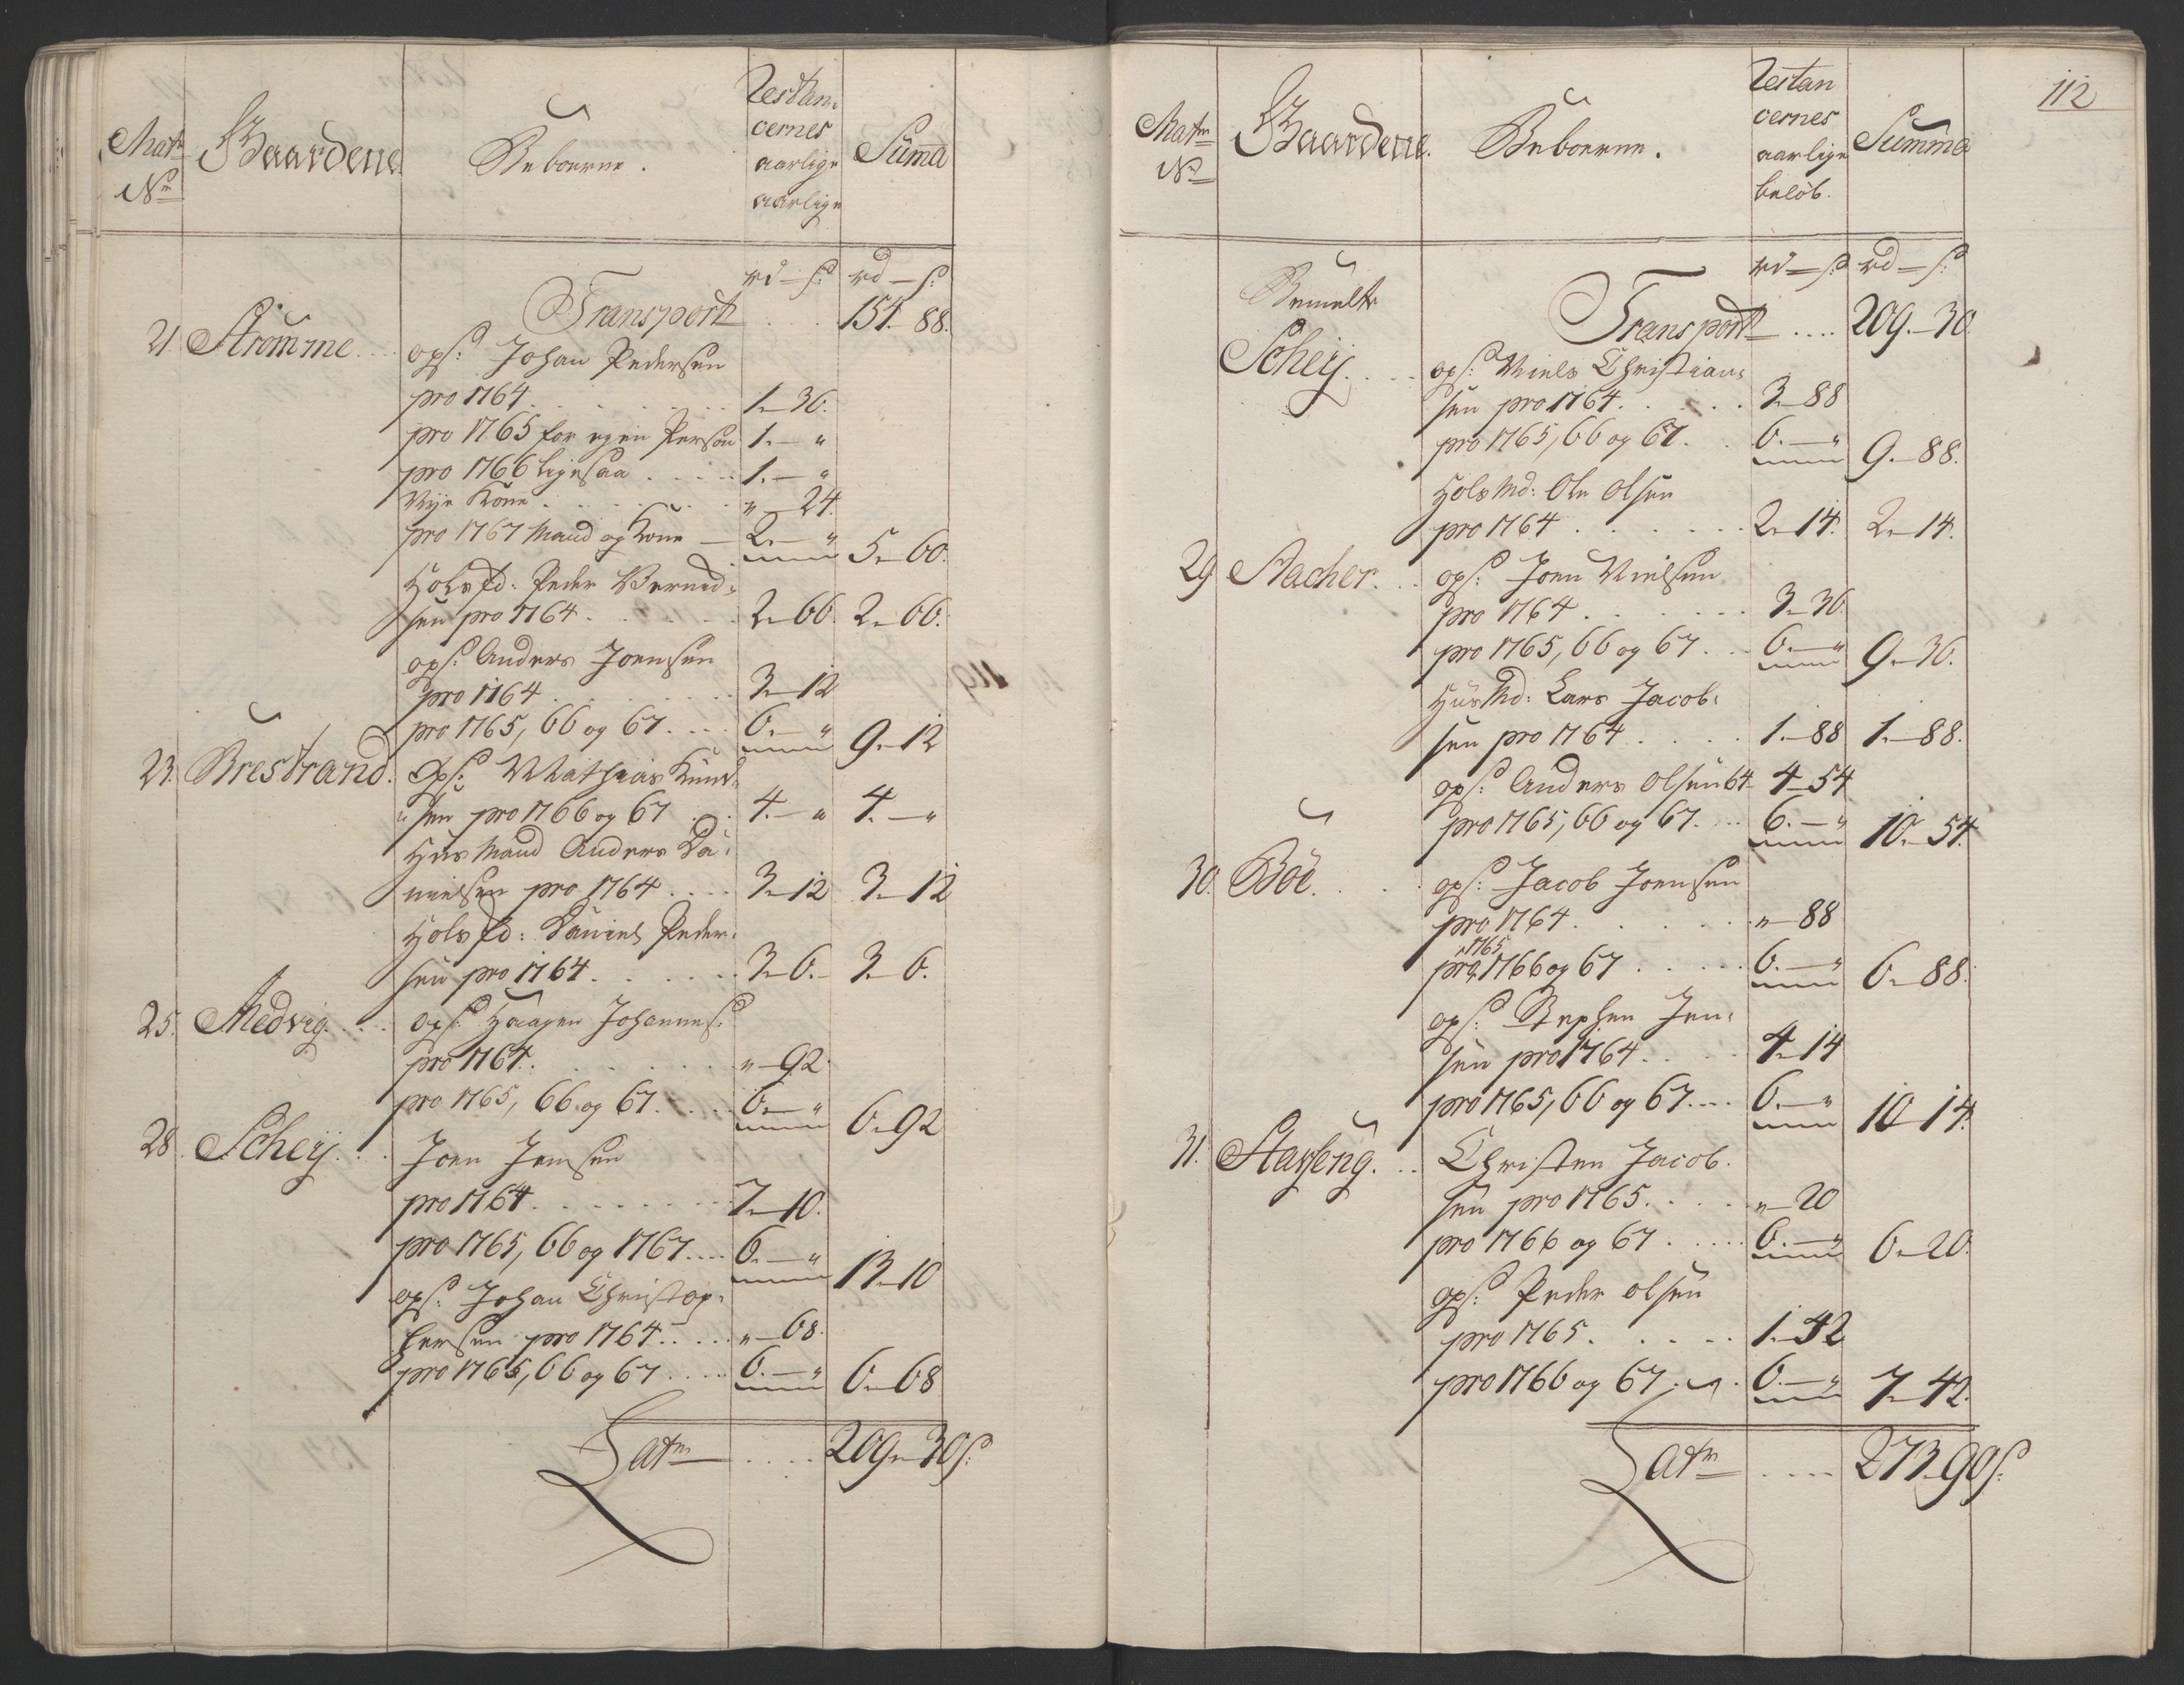 Matr
No
Gaardene
Beboerne.
Restan-
cernes
aarlige
aarlige
Suma
rd — s: rd — s:
Transport . . . . 151.-88.
21 Strømme . . . ops: Johan Pedersen
pro 1764 . . . . . . . 1.-36.
pro 1765 for egen Person 1.- "
pro 1766 ligesaa . . . . . 1.- "
Nye Kone . . . . . . . " - 24.
pro 1767 Mand og Kone — 2.- " 5.-60.
Holdsfd: Peder Berend-
sen pro 1764 . . . . . 2.-66. 2.-66.
ops: Anders Joensen
pro 1764 . . . . . . . 3.-12
pro 1765, 66 og 67 . . . . 6.- " 9.-12
23. Brestrand. Ops: Mathias Knud-
sen pro 1766 og 67 . . . 4.- " 4.- "
Huus Mand Anders Da-
nielsen pro 1764 . . . . 3.-12 3.-12
Holdsfd: Daniel Peder-
sen pro 1764 . . . . . . 3.-6.- 3.-6.
25. Medvig. . . . ops: Haagen Johannes:
pro 1764. . . . . . . . " -92.
pro 1765, 66 og 67. . . . 6.- " 6.-92
28. Scheij. . . . Joen Jensen
pro 1764. . . . . . . . 7.-10.
pro 1765, 66 og 1767 . . . . 6.- " 13.-10
ops: Johan Christop-
hersen pro 1764 . . . . . " -68.
pro 1765, 66 og 67 . . . . . 6.- " 6.-68
Latr . . . . 209.-30 s:
112
Matr
No
Gaardene.
Beboerne.
Restan
cernes
aarlige
beløb.
Summa
rd — s: rd — s:
Bemelte
Transport . . . . 209.-30.
Scheij. . . . ops: Niels Christian-
sen pro 1764 . . . . . . 3.-88
pro 1765, 66 og 67. . . 6.- " 9.-88.
Holds Md: Ole Olsen
pro 1764 . . . . . . . 2.-14. 2.-14.
29 Aacher. . . ops: Joen Nielsen
pro 1764 . . . . . . . 3.-36.
pro 1765, 66 og 67 . . . 6.- " 9.-36.
Huus Md: Lars Jacob-
sen pro 1764 . . . . . 1.-88 1.-88.
ops: Anders Olsen 64- 4-54
pro 1765, 66 og 67. . . . 6.- " 10.-54.
30. Böe. . . . . ops: Jacob Joensen
pro 1764. . . . . . . . " -88
1765
pro 1766 og 67 . . . . . . 6.- " 6.-88.
ops: Stephen Jen-
sen pro 1764. . . . . 4.-14
pro 1765, 66 og 67. . . . 6.- " 10 14.
31. Starseng. . . Christen Jacob-
sen pro 1765. . . . . " -20
pro 1766 og 67 . . . . . . 6.- " 6.-20.
ops: Peder Olsen
pro 1765 . . . . . . 1.-42
pro 1766 og 67 . . . 6.- " 7.-42.
Latr . . . . 273.-90 s: